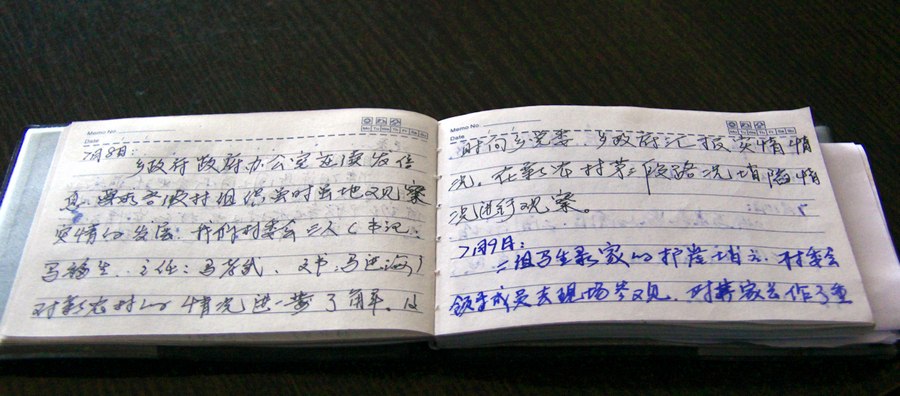 Memo No.
Date
7月8日:
乡政府政府办公室连续发信
息,要求各级村组织要时当地观察
灾情的发展,我们村委会三人(书记:
马福生 主任:马孝武 文书:马进海)
对新农村的情况进一步了解。及
Memo No.
Date
时向乡党委、乡政府汇报灾情情
况。在新农村第二段路况塌陷情
况进行观察。
7月9日:
二组马生 家的护崖塌方,村委会
领导成员去现场参观,对其家长作了重